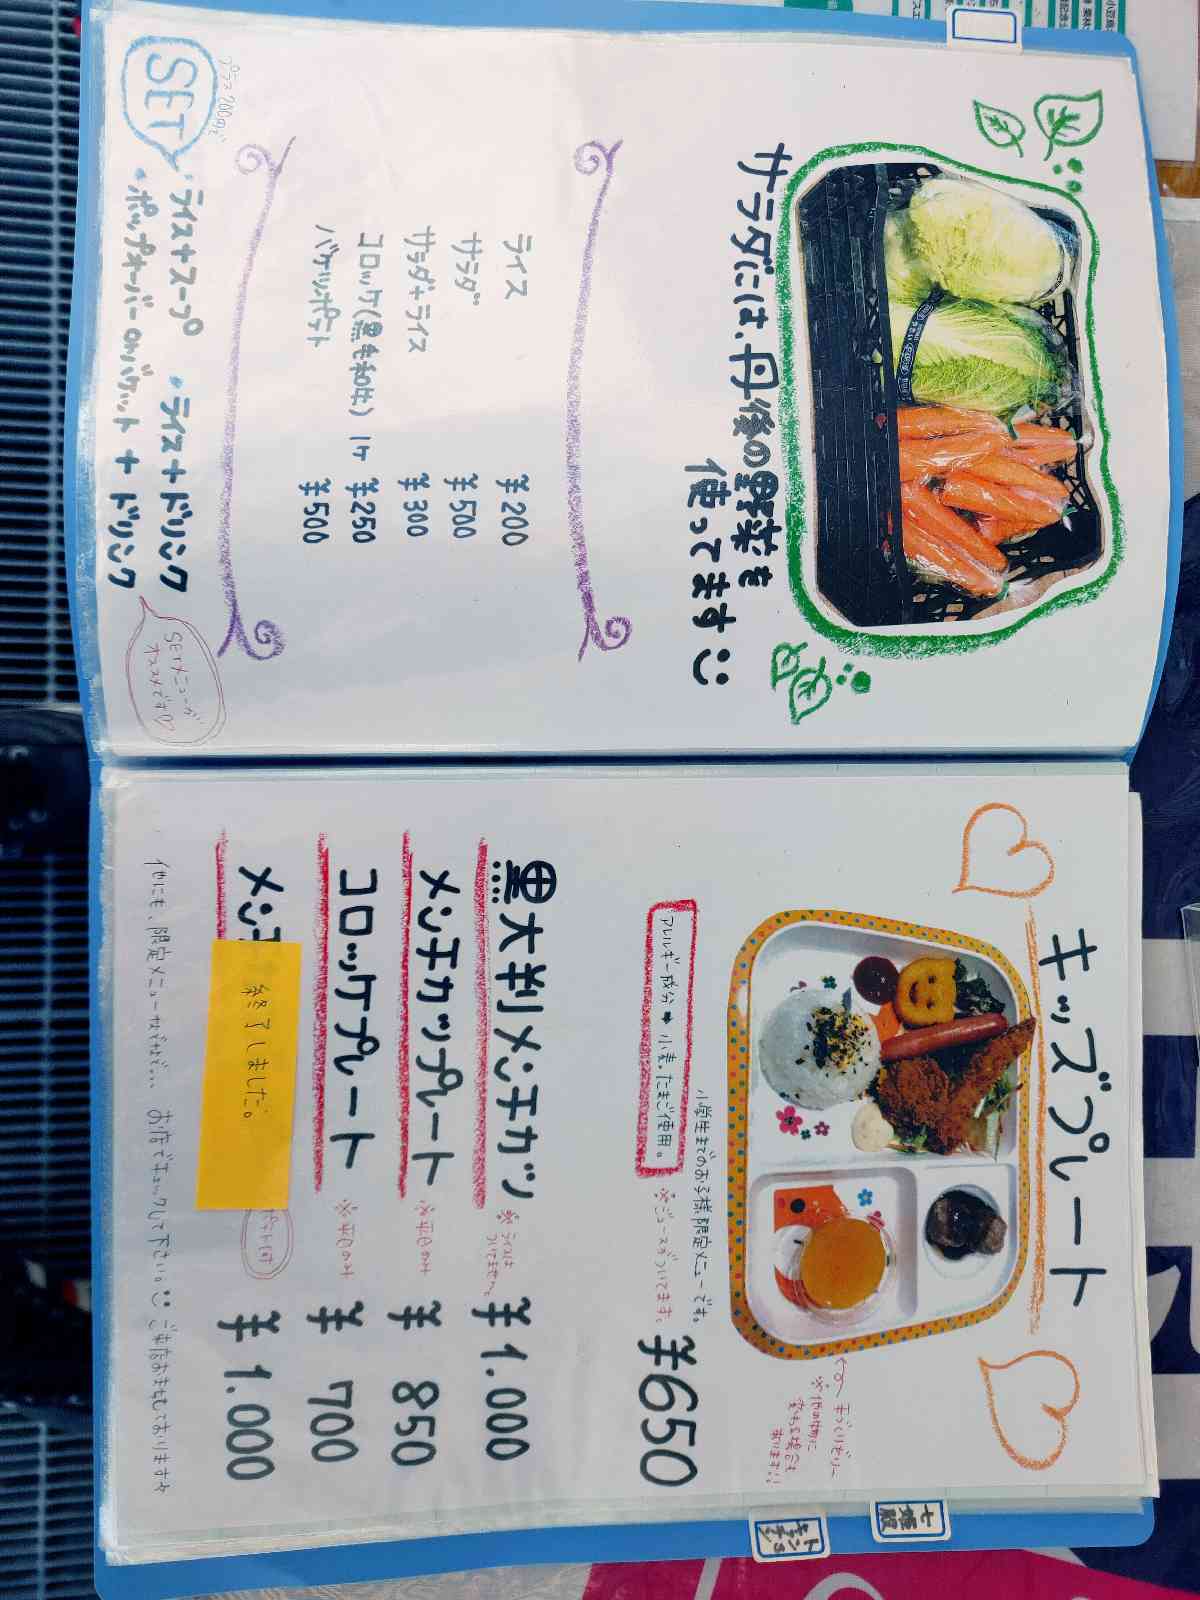 サラダには、丹後の野菜を
使ってます
ライス ¥200
サラダ ¥500
サラダ+ライス ¥300
コロッケ(黒毛和牛) 1ケ ¥250
バケツポテト ¥500
プラス200円で
SET
・ライス+スープ ・ライス+ドリンク
・ポップオーバーorバケット + ドリンク
SETメニューが
オススメです♡
キッズプレート
手づくりゼリー
※他の物に
変わる場合も
あります!!
小学生までのお子様限定メニューです。
アレルギー成分➡小麦、たまご使用。
※ジュースがついてます。
¥650
黒大判メンチカツ ※ライスは
ついてません ¥1.000
メンチカツプレート ※平日のみ ¥850
コロッケプレート ※平日のみ ¥700
メンチ
終了しました。
ポテト付
¥1.000
他にも、限定メニューなどなど... お店でチェックして下さい。ご来店お待ちしております
七姫殿
トン
キッチン